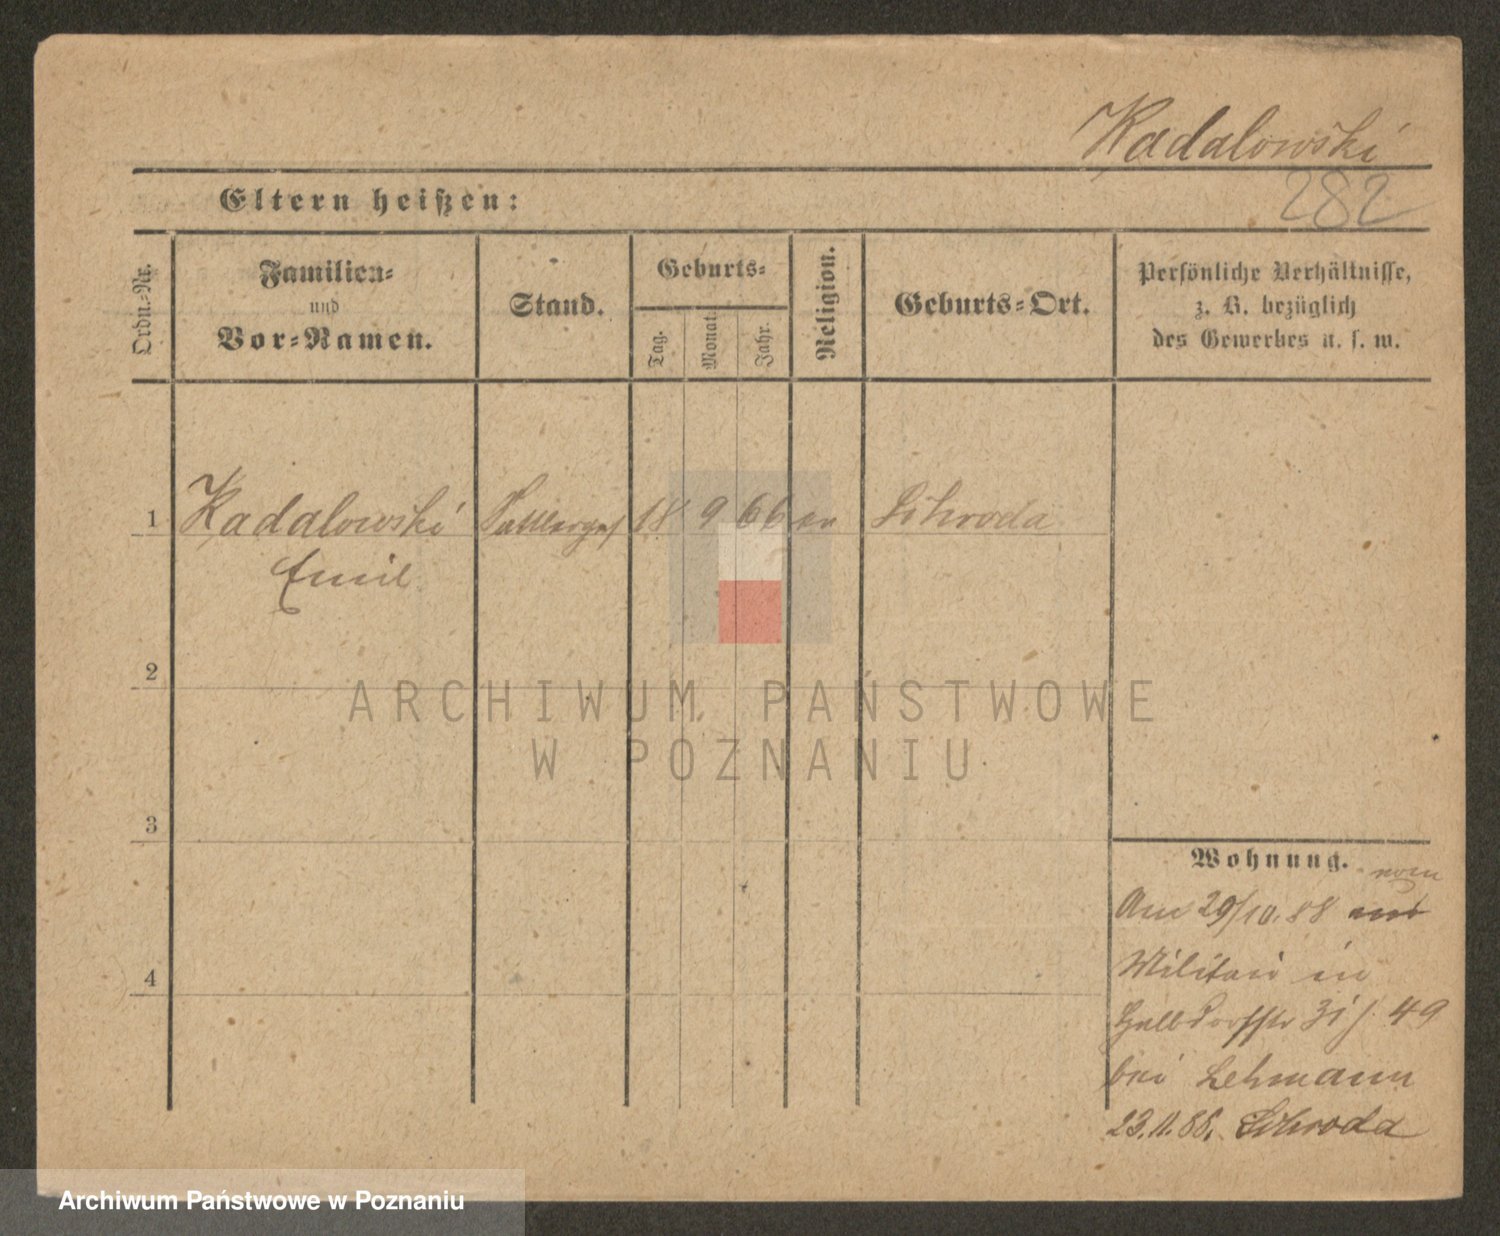 Kadalowski
282
Eltern heißen:
Ordn.-Nr.
Familien-
und
Vor-Namen.
Stand.
Geburts-
Tag.
Monat.
Jahr.
Religion.
Geburts-Ort.
Persönliche Verhältnisse,
z. B. bezüglich
des Gewerbes u. s. w.
1 Kadalowski 18 9 66 Schroda
Emil
2
3
4
Wohnung.
vom
Am 29/10. 88
Militair in
Halbdorfstr 31 / 49
bei Lehmann
23.11.88. Schroda
ARCHIWUM PAŃSTWOWE
W POZNANIU
Archiwum Państwowe w Poznaniu